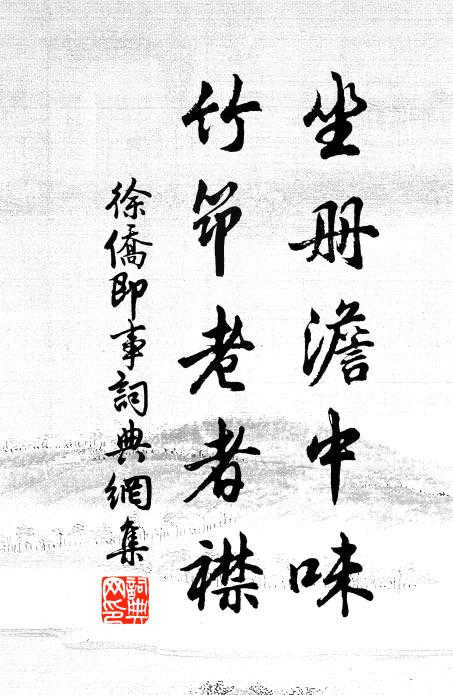 坐册澹中味
竹笻老者襟
徐僑即事詞典網集
詞典网印